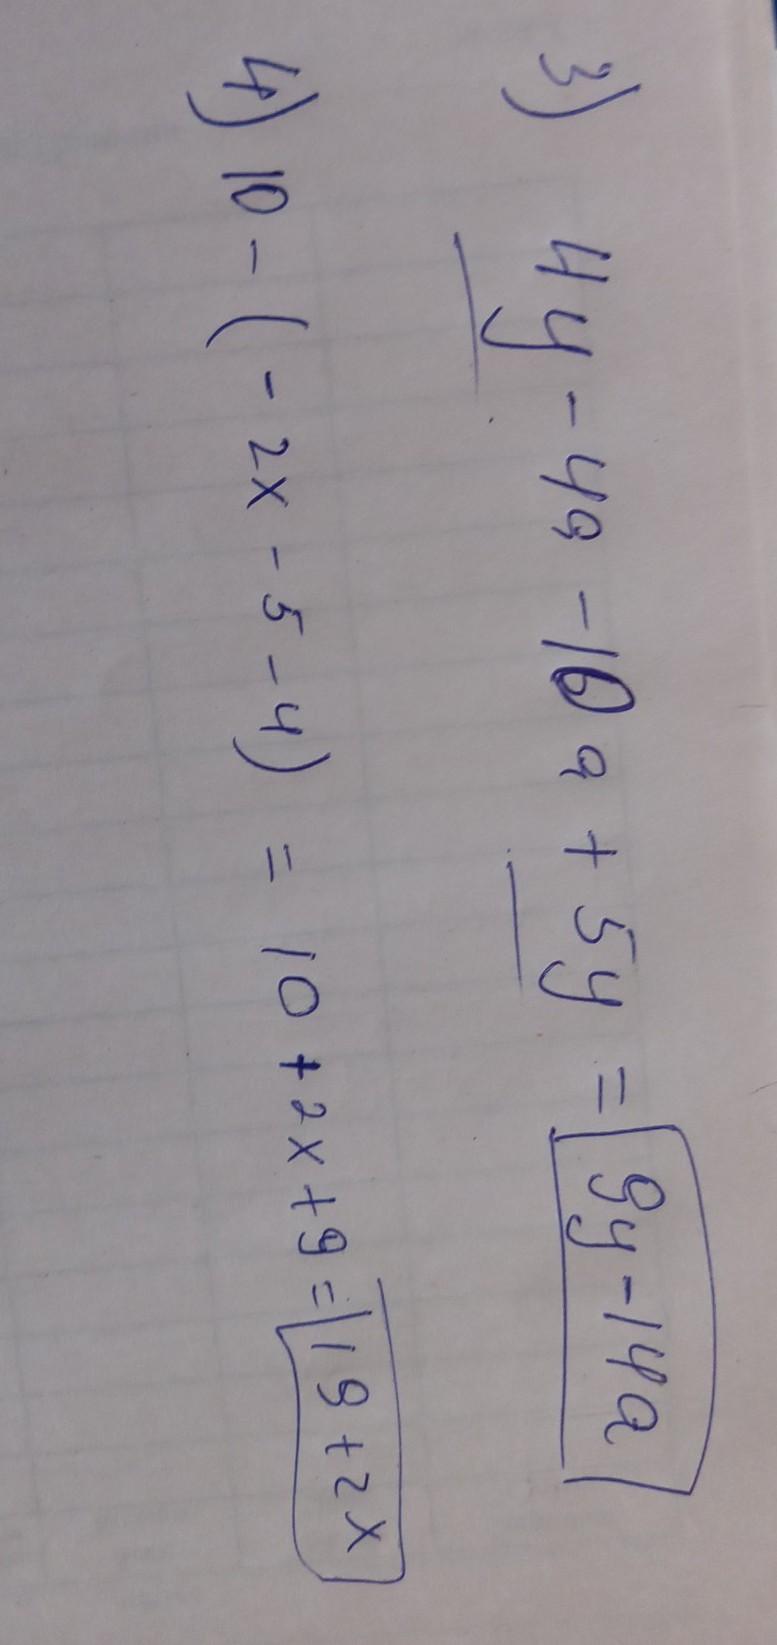 3) 4y - 4a - 10a + 5y = 9y - 14a
4) 10 - (- 2x - 5 - 4) = 10 + 2x + 9 = 19 + 2x